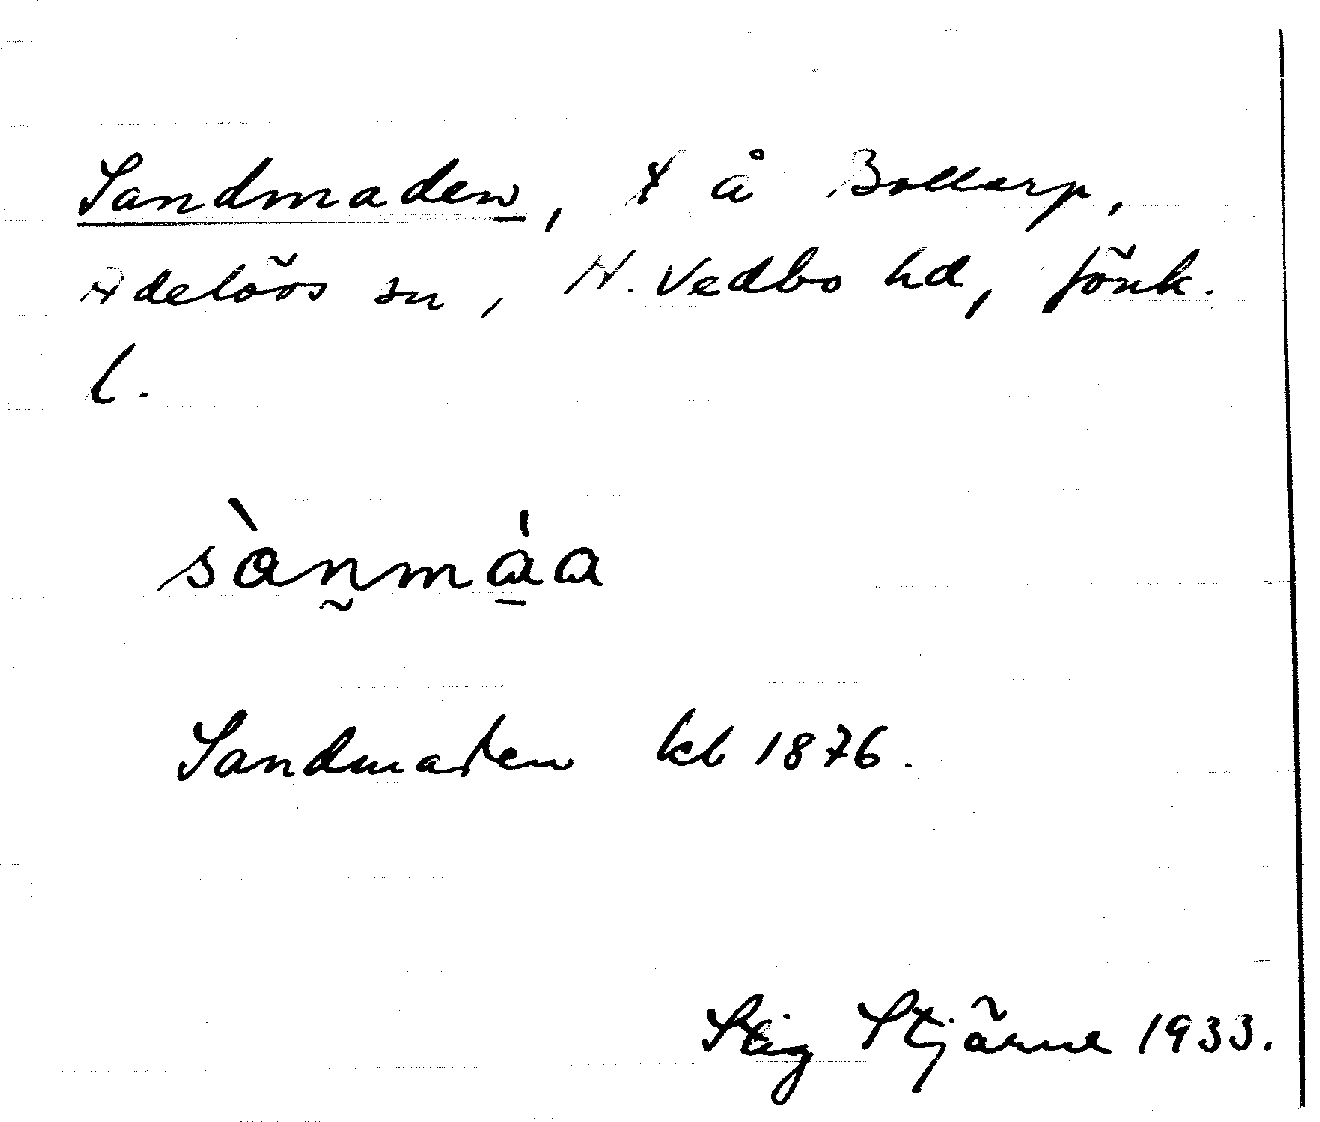 Sandmaden, ✗ å Bollarp,
Adelövs sn, N. Vedbo hd, Jönk.
l.
sàn̰mà̱a
Sandmaden kb 1876.
Stig Stjärne 1933.